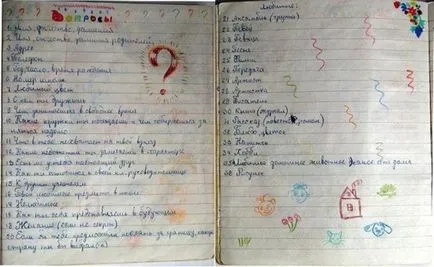 Вопросы
1. Имя, фамилия, отчество.
2. Имя, отчество, фамилия родителей
3. Адрес
4. Телефон
5. Год, число, время рождения
6. Номер школы
7. Любимый цвет
8. С кем ты дружишь
9. Чем занимаешься в свободное время
10. Какие кружки ты посещаешь и чем собираешься за
11. Чего в тебе не хватает на твой взгляд
12. Какие ты замечаешь в характере
13. Есть ли у тебя настоящий друг
14. Как ты относишься к своей кл. руководительнице
15. К другим учителям
16. Твои любимые предметы в школе
17. Нелюбимые
18. Кем ты себя представляешь в будущем
19. Желание (если не секрет)
20. Если бы тебе предложили поехать за границу, какую
страну ты бы выбрал(а)
Любимые:
21. (группа)
22. Певец
23. Певица
24. Песня
25. Фильм
26. Передача
27. Артист
28. Артистка
29. Писатель
30. Книга (журнал)
31. Рассказ (повесть, роман)
32. Блюдо,
33. Напиток
34. Хобби
35. Любимое домашнее животное у тебя дома
36. Рисунок